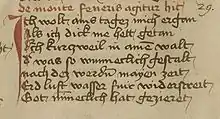 de monte feneris agitur hic 29.
Ich wolt ains tages mich ergan
Als ich dick me hett getan
Ich kurtzweil in aine walt
D was so wunneclich gestalt
nach des werden mayen zeit
Erd lust wasser fuir widerstreit
Gott minneclich hat gezieret